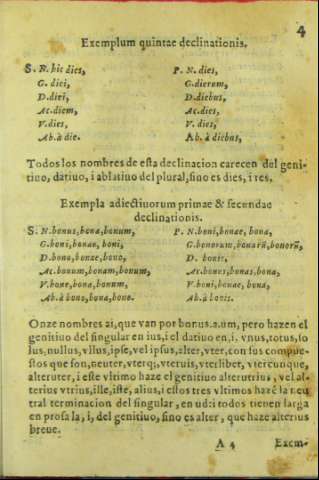 4
Exemplum quintae declinationis.
S. N. hic dies, P. N. dies,
G. diei, G. dierum,
D. diei, D. diebus,
Ac. diem, Ac. dies,
V. dies, V. dies,
Ab. à die. Ab. à diebus,
Todos los nombres de esta declinacion carecen del geni-
tiuo, datiuo, i ablatiuo del plural, sino es dies, i res.
Exempla adiectiuorum primae & secundae
declinationis.
S. N. bonus, bona, bonum, P. N. boni, bonae, bona,
G. boni, bonae, boni, G. bonorum, bonarũ, bonorũ,
D. bono, bonae, bono, D. bonis,
Ac. bonum, bonam, bonum, Ac. bonos, bonas, bona,
V. bone, bona, bonum, V. boni, bonae, bona,
Ab. à bono, bona, bono. Ab. à bonis.
Onze nombres ai, que van por bonus. a. um, pero hazen el
genitiuo del singular en ius, i el datiuo en, i. vnus, totus, so
lus, nullus, vllus, ipse, vel ipsus, alter, vter, con sus compue-
stos que son, neuter, vterq;, vteruis, vterliber, vtercunque,
alteruter, i este vltimo haze el genitiuo alterutrius, vel al-
terius vtrius, ille, iste, alius, i estos tres vltimos hazẽ la neu
tral terminacion del singular, en ud: i todos tienen larga
en prosa la, i, del genitiuo, sino es alter, que haze alterius
breue.
A 4 Exem-